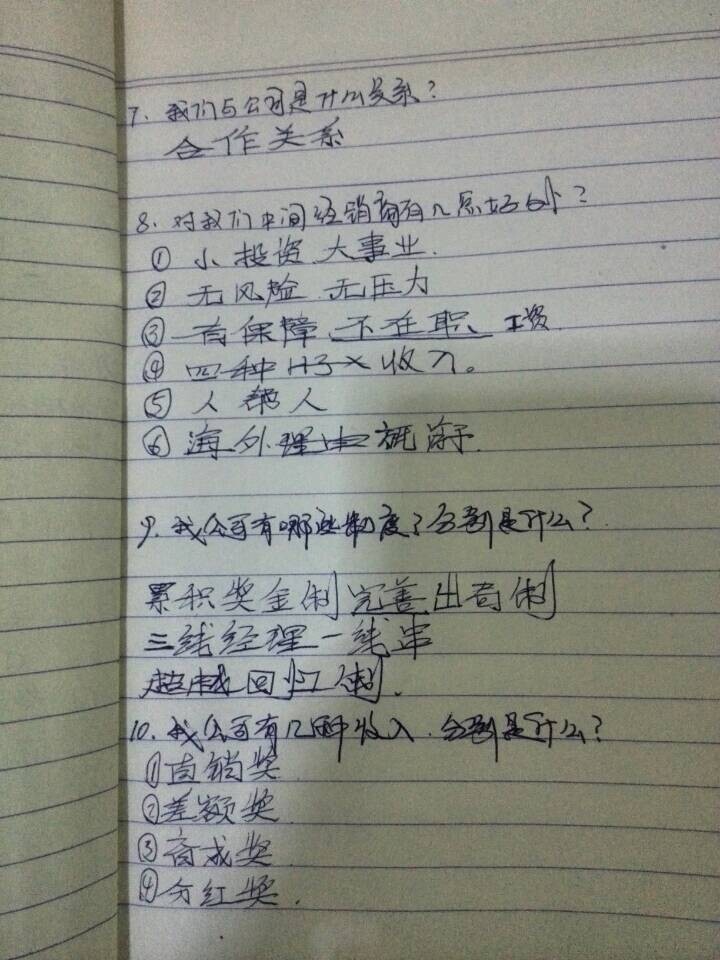 7、我们与公司是什么关系？
合作关系
8、对我们中间经销商有几点好处？
① 小投资 大事业.
② 无风险 无压力
③ 有保障、不在职、工资
④ 四种 收入。
⑤ 人帮人
⑥ 海外理
9、我公司有哪些制度？分别是什么？
累积奖金制 完善出局制
三线经理一线串
超越回归制.
10、我公司有几种收入.分别是什么？
①直销奖
②差额奖
③育成奖
④分红奖.